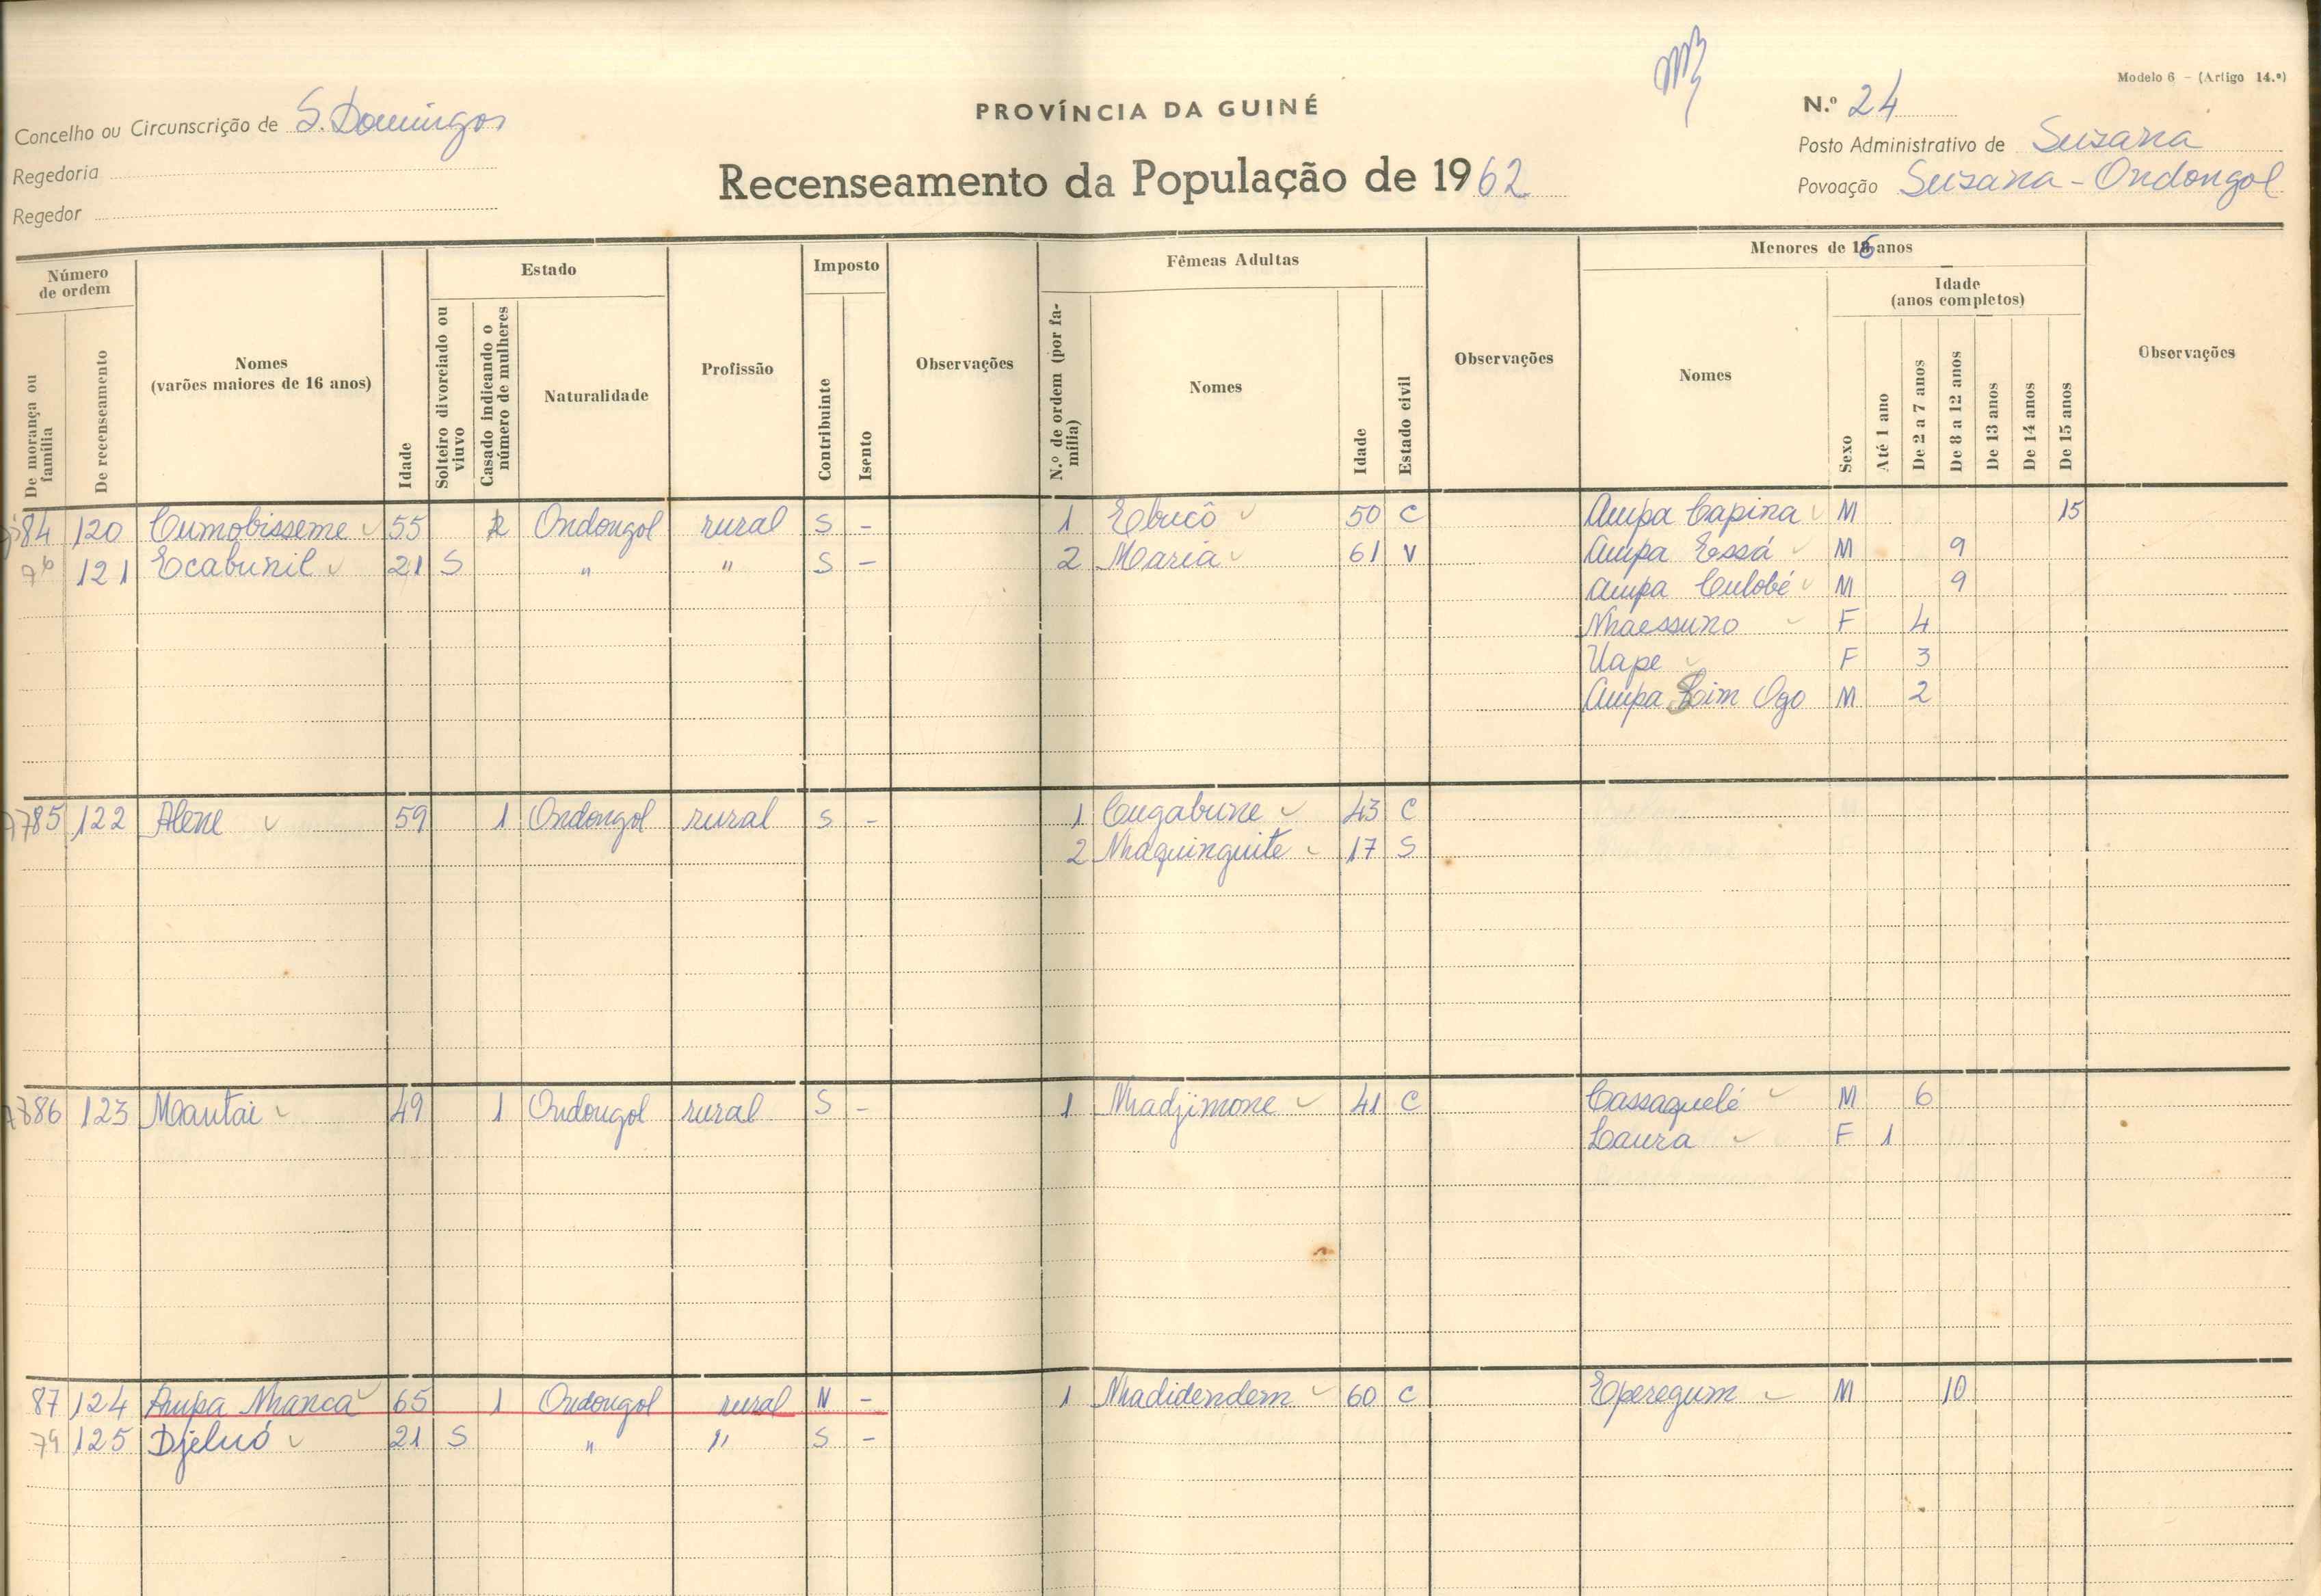 Modelo 6 - (Artigo 14.º)
PROVÍNCIA DA GUINÉ
N.º 24
Concelho ou Circunscrição de S. Domingos
Posto Administrativo de Suzana
Regedoria
Recenseamento da População de 1962
Povoação Suzana - Ondongol
Regedor
Número de ordem
De morança ou família
De recenseamento
Nomes
(varões maiores de 16 anos)
Idade
Estado
Solteiro divorciado ou viuvo
Casado indicando o número de mulheres
Naturalidade
Profissão
Imposto
Contribuinte
Isento
Observações
Fêmeas Adultas
N.º de ordem (por família)
Nomes
Idade
Estado civil
Observações
Menores de 15 anos
Nomes
Sexo
Idade
(anos completos)
Até 1 ano
De 2 a 7 anos
De 8 a 12 anos
De 13 anos
De 14 anos
De 15 anos
Observações
84 120 Cumobisseme 55 2 Ondongol rural S - 1 Ebucô 50 C Ampa Capina M 15
121 Ecabunil 21 S " " S - 2 Maria 61 V Ampa Essá M 9
Ampa Culobé M 9
Nhaessuno F 4
Uape F 3
Ampa Sim Ogo M 2
85 122 Alene 59 1 Ondongol rural S - 1 Cugabune 43 C
2 Nhaquinguite 17 S
86 123 Mantai 49 1 Ondongol rural S - 1 Nhadjimone 41 C Cassaquelé M 6
Laura F 1
87 124 Ampa Nhanca 65 1 Ondongol rural N - 1 Nhadidendem 60 C Eperegum M 10
79 125 Djeluó 21 S " " S -